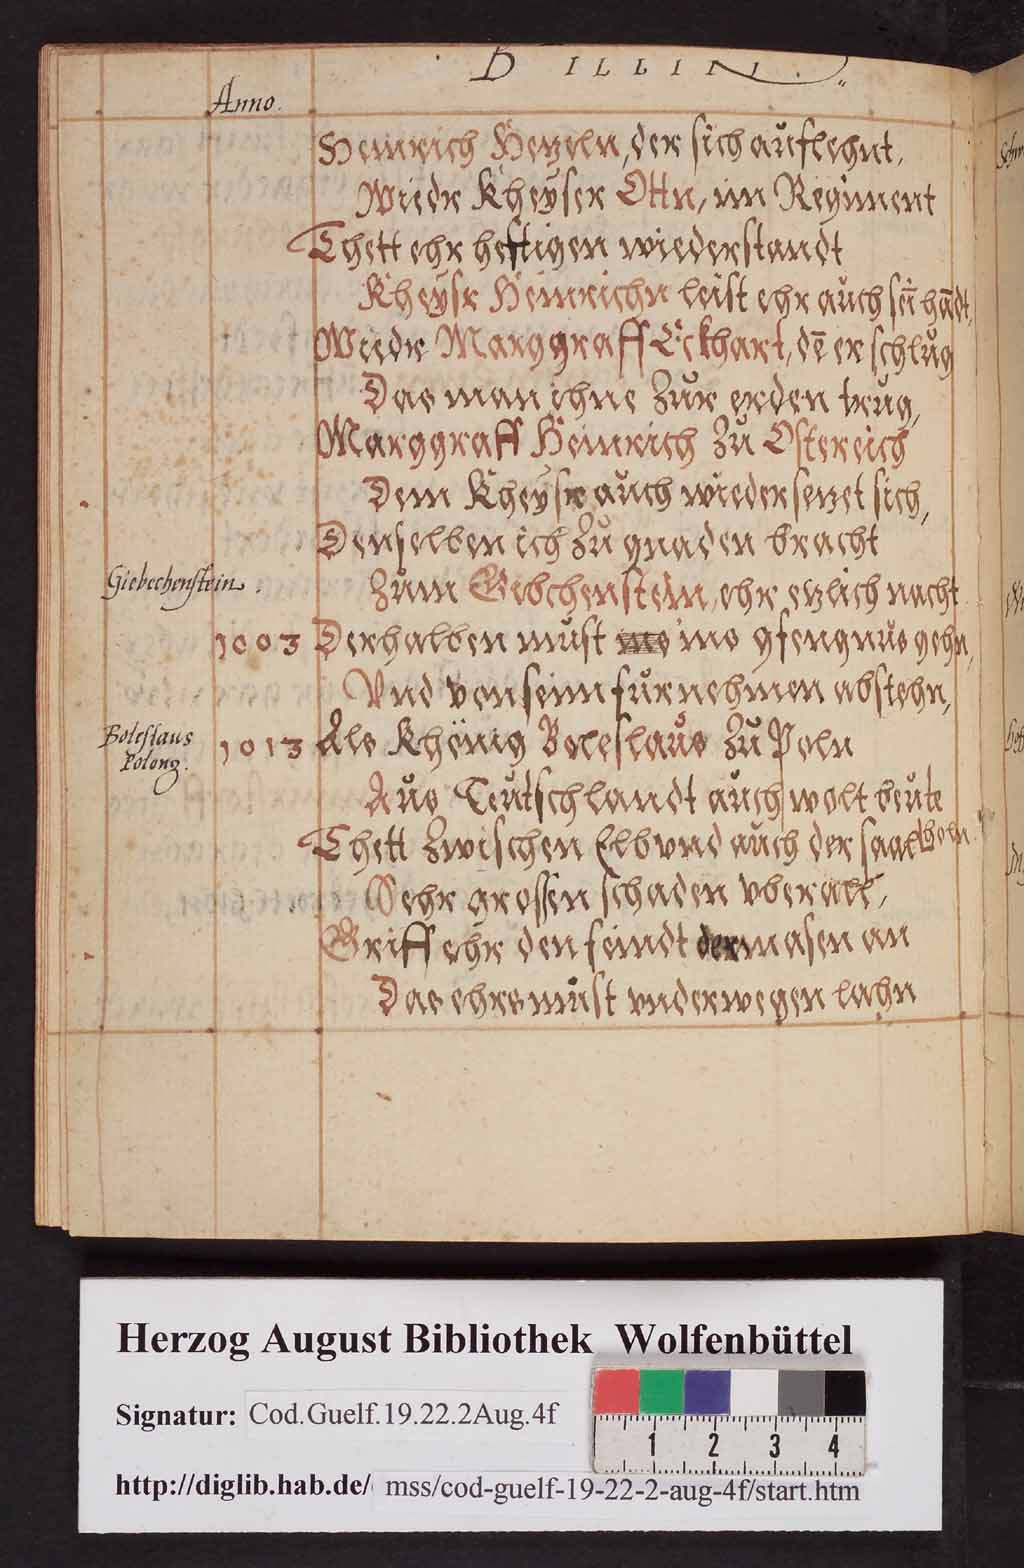 BILLINI.
Anno.
Heinrich Hezeln, der sich auflehnt,
Wiedr Kheyser Ottn, im Regiment
Thett ehr heftigen wiederstandt
Kheysr Heinrichn leist ehr auch sein̄ hādt,
Wiedr Marggraff Eckhart, dē er schlug
Das man ihne zur erden trug,
Marggraff Heinrich zu Ostereich
Dem Kheysr auch wiedersezet sich,
Denselben ich zu gnaden bracht
Giebechenstein.
Zum Gebchenstein, ehr ezlich nacht
1003 Derhalben must ins gfengnus gehn,
Vnd von seim furnehmen abstehn,
Boleslaus
Polong.
1013 Als Khönig Boleslaus zu Poln
Aus Teutschlandt auch wolt beute holn
Thett zwischen Elb vnd auch der saal
Sehr grossen schaden vberall,
Griff ehr den feindt dermasen an
Das ehrs must vnderwegen lahn
Herzog August Bibliothek Wolfenbüttel
Signatur: Cod.Guelf.19.22.2Aug.4f
1 2 3 4
http://diglib.hab.de/ mss/cod-guelf-19-22-2-aug-4f/start.htm